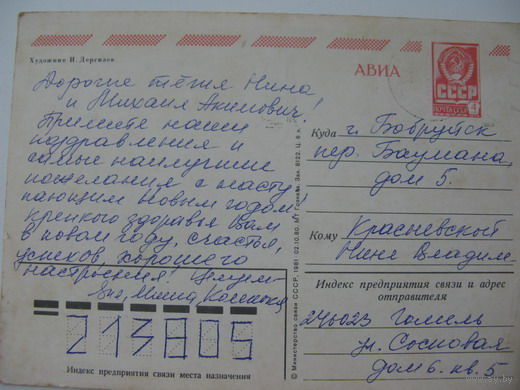 Художник И. Дергилев
АВИА
ПОЧТА СССР
4
Дорогие тётя Нина
и Михаил Акимович!
Примите наши
поздравления и
самые наилучшие
пожелания с насту
пающим Новым годом!
Крепкого здоровья Вам
в новом году, счастья,
успехов, хорошего
настроения! Целуем
Миша
Куда г. Бобруйск
пер. Баумана
дом 5.
Кому Красневской
Нине Владим
Индекс предприятия связи и адрес
отправителя
246023 Гомель
ул. Сосновая
дом 6. кв. 5
213805
Индекс предприятия связи места назначения
© Министерство связи СССР, 1981. 02.10.80.